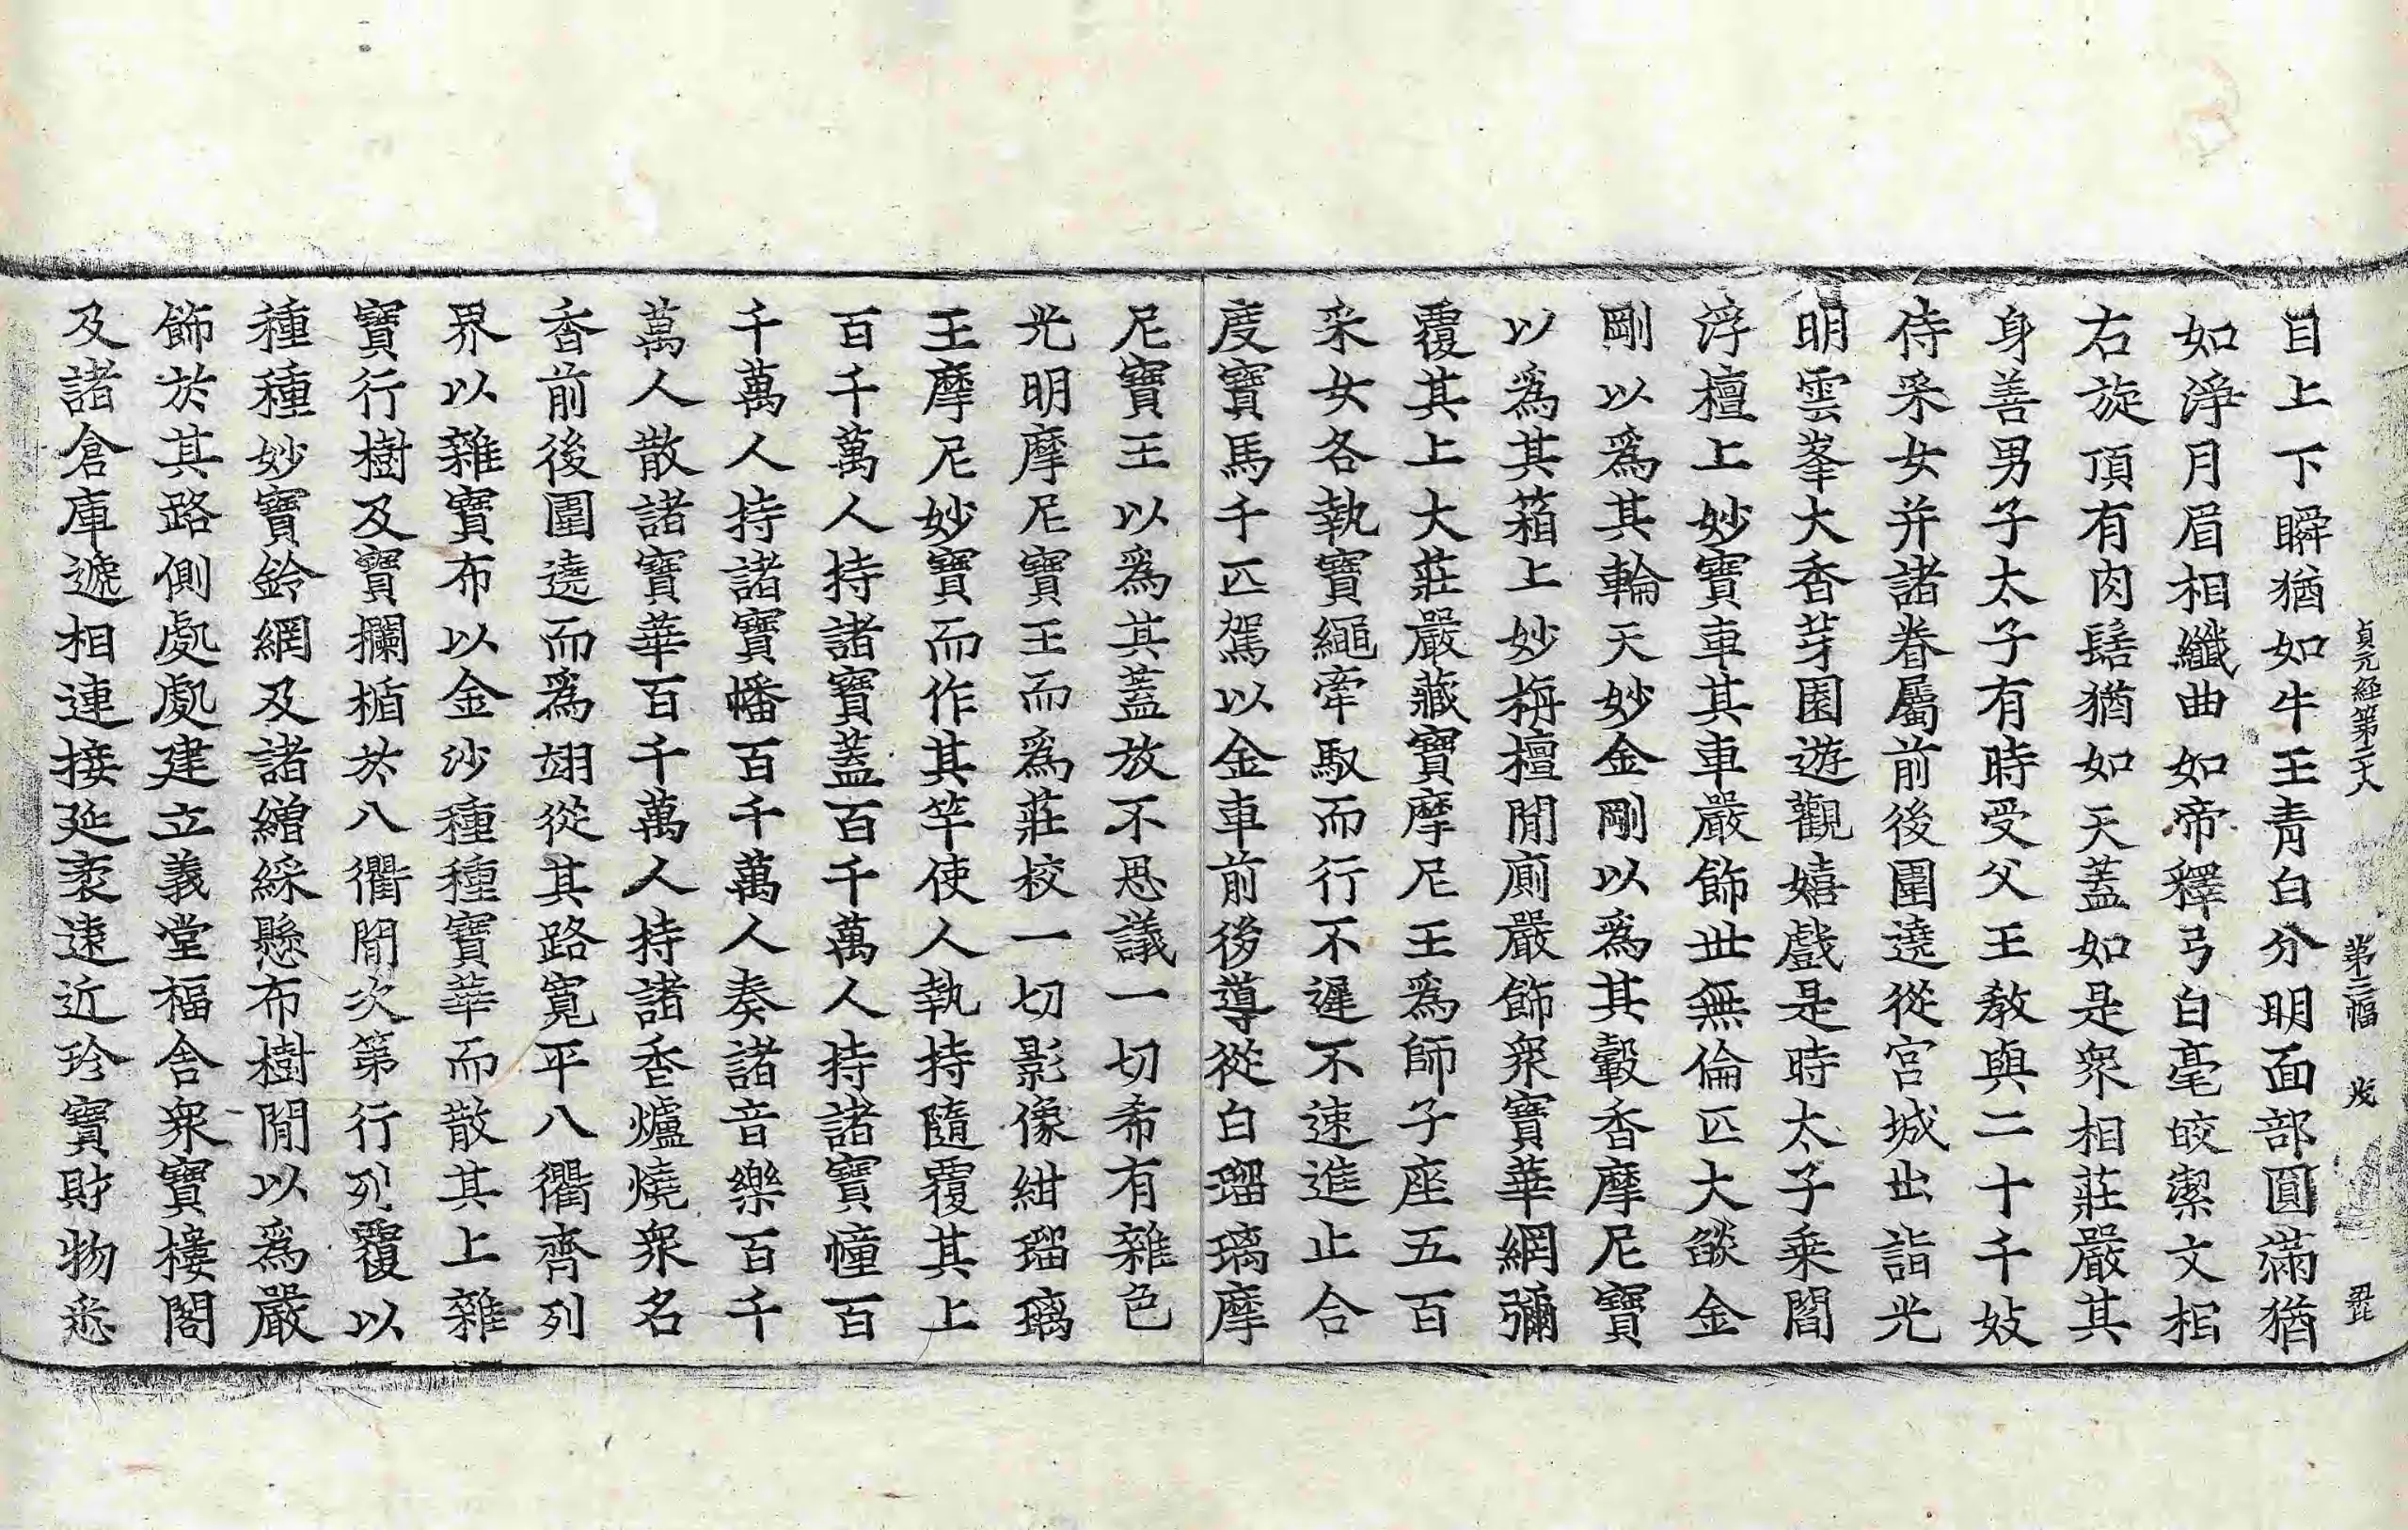 貞元經第二十八 第三幅 茂
目上下瞬猶如牛王青白分明面部圓滿猶
如淨月眉相纖曲如帝釋弓白毫皎潔文相
右旋頂有肉髻猶如天蓋如是衆相莊嚴其
身善男子太子有時受父王教與二十千妓
侍采女并諸眷屬前後圍遶從宮城出詣光
明雲峯大香芽園遊觀嬉戲是時太子乘閻
浮檀上妙寶車其車嚴飾世無倫匹大燄金
剛以爲其輪天妙金剛以爲其轂香摩尼寶
以爲其箱上妙栴檀閒廁嚴飾衆寶華網彌
覆其上大莊嚴藏寶摩尼王爲師子座五百
采女各執寶繩牽馭而行不遲不速進止合
度寶馬千匹駕以金車前後導從白瑠璃摩
尼寶王以爲其蓋放不思議一切希有雜色
光明摩尼寶王而爲莊校一切影像紺瑠璃
王摩尼妙寶而作其竿使人執持隨覆其上
百千萬人持諸寶蓋百千萬人持諸寶幢百
千萬人持諸寶幡百千萬人奏諸音樂百千
萬人散諸寶華百千萬人持諸香爐燒衆名
香前後圍遶而爲翊從其路寬平八衢齊列
界以雜寶布以金沙種種寶華而散其上雜
寶行樹及寶欄楯於八衢閒次第行列覆以
種種妙寶鈴網及諸繒綵懸布樹閒以爲嚴
飾於其路側處處建立義堂福舍衆寶樓閣
及諸倉庫遞相連接延袤遠近珍寶財物悉